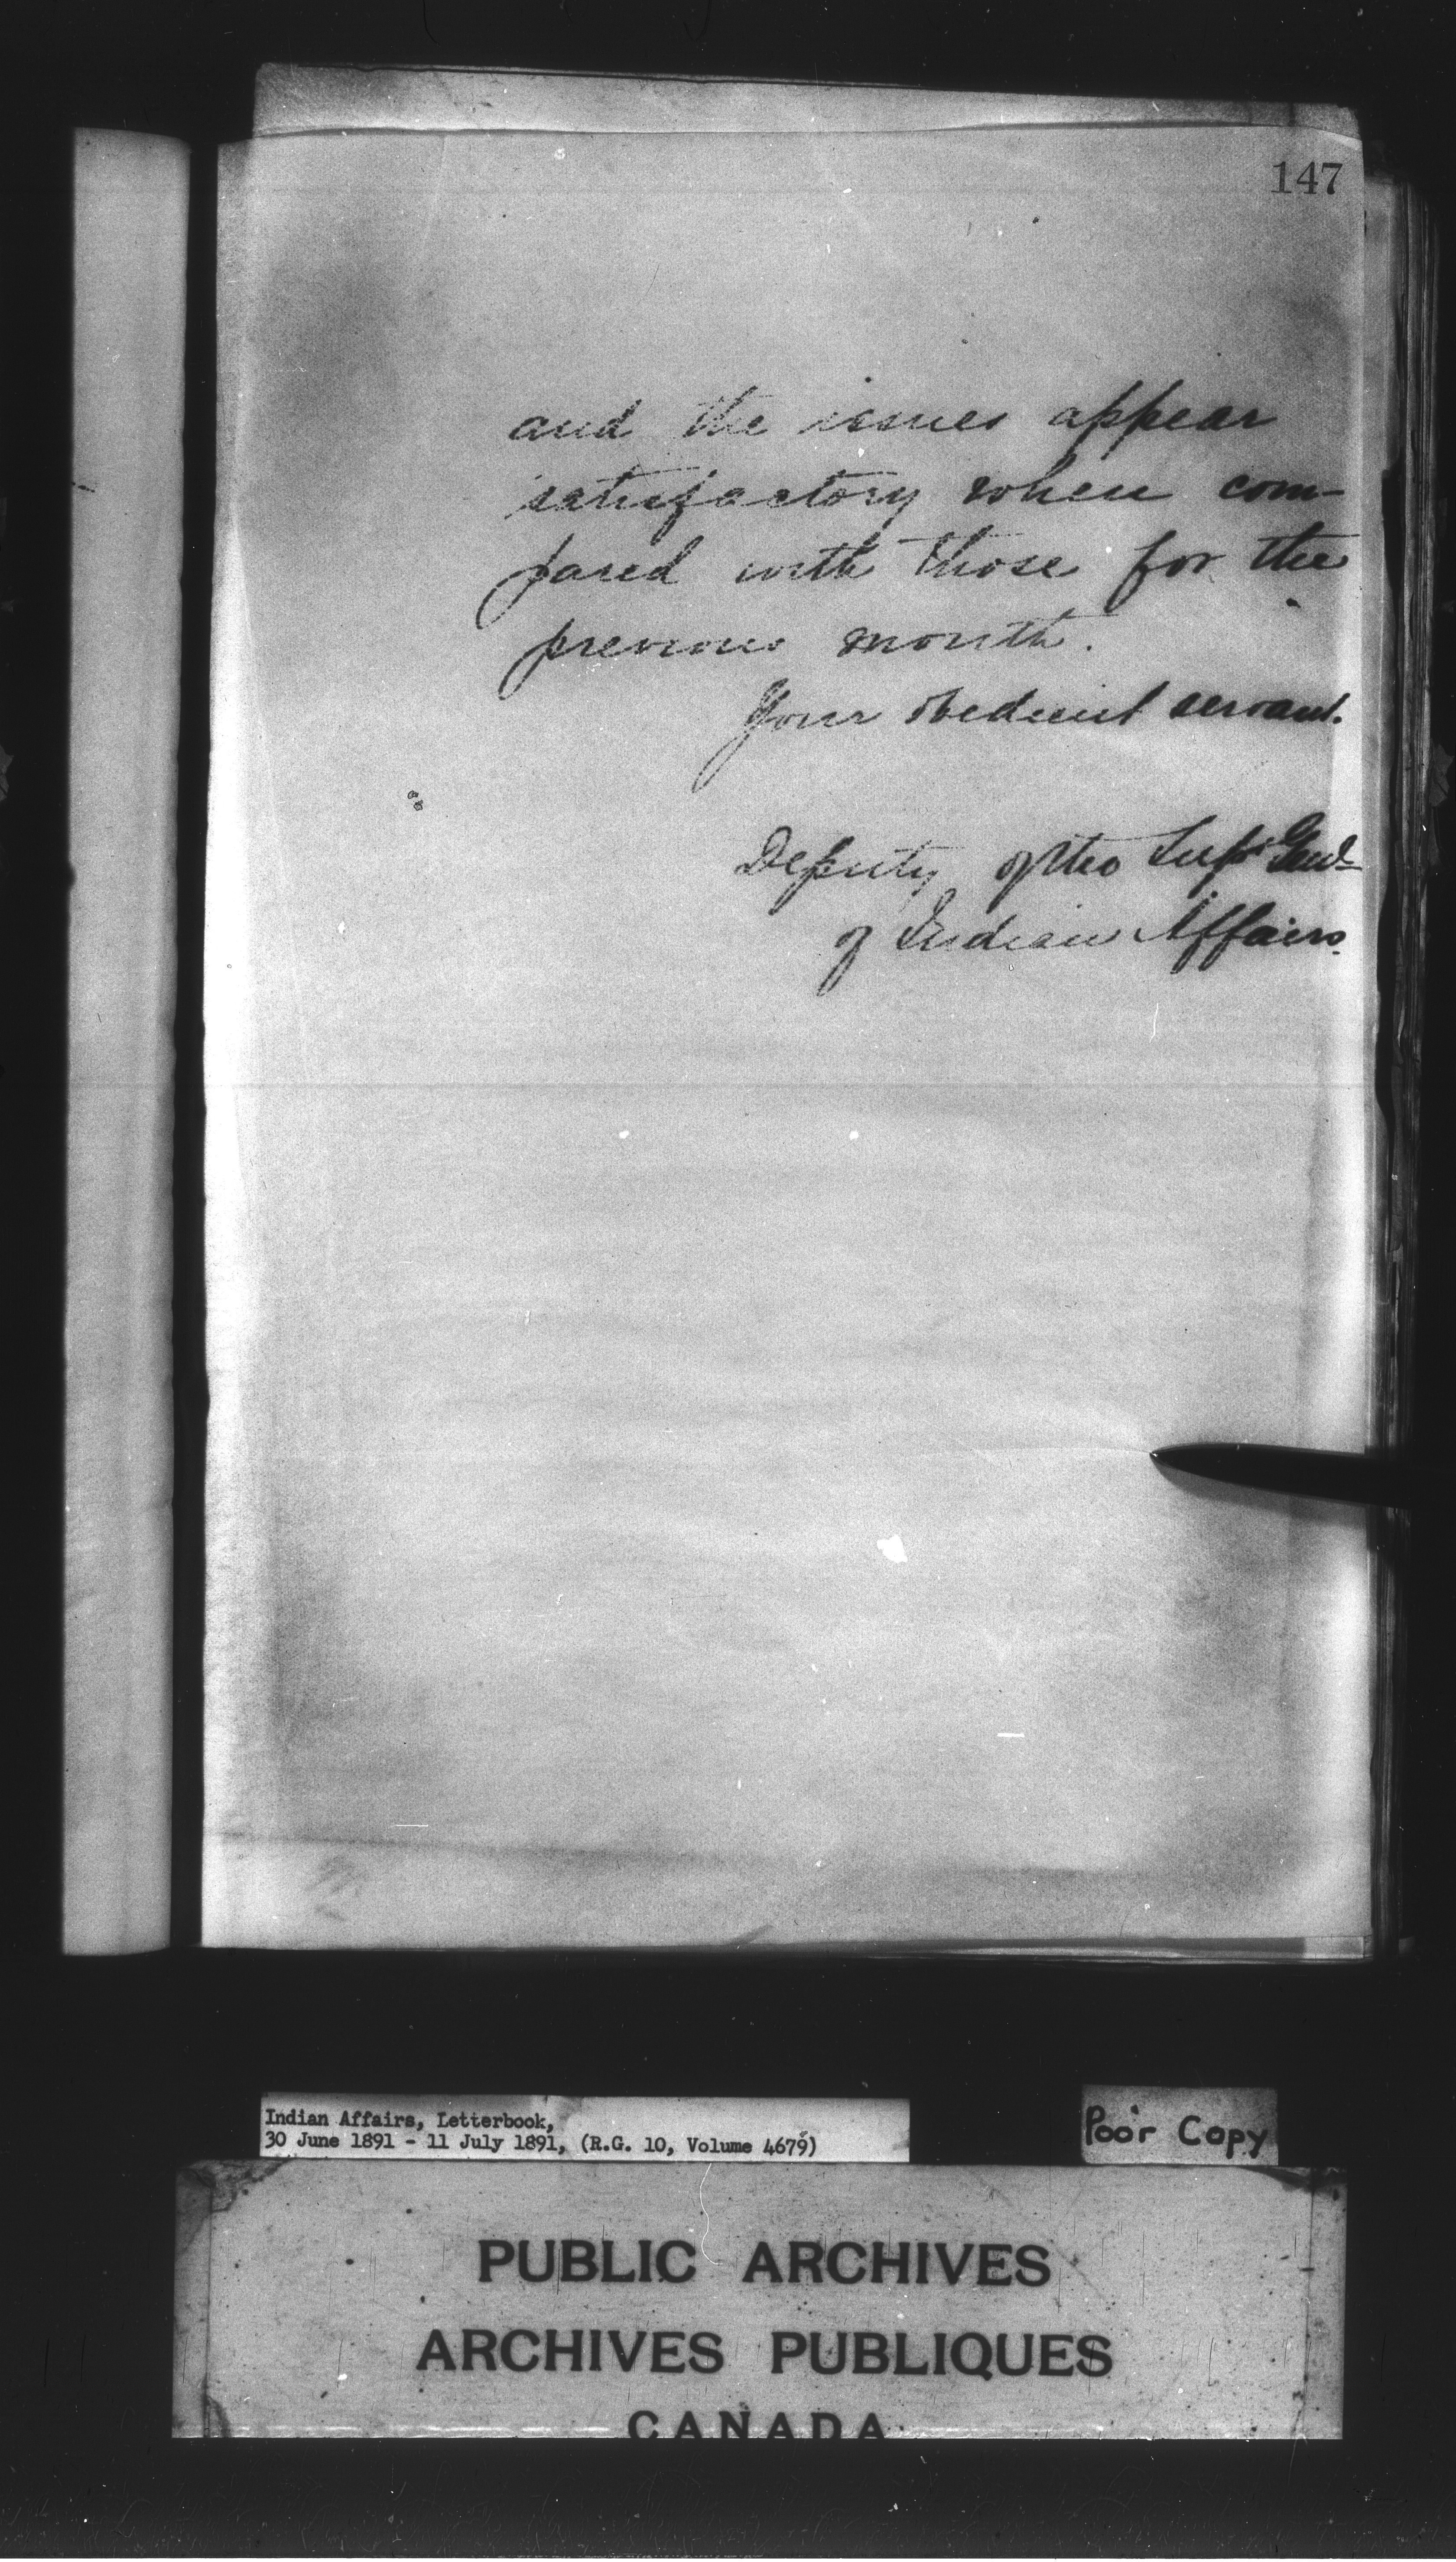 147
and the issues appear
satisfactory when com-
pared with those for the
previous month.
Your obedient servant.
Deputy of the Supt. Genl
of Indian Affairs.
Indian Affairs, Letterbook,
30 June 1891 - 11 July 1891, (R.G. 10, Volume 4679)
Poor Copy
PUBLIC ARCHIVES
ARCHIVES PUBLIQUES
CANADA